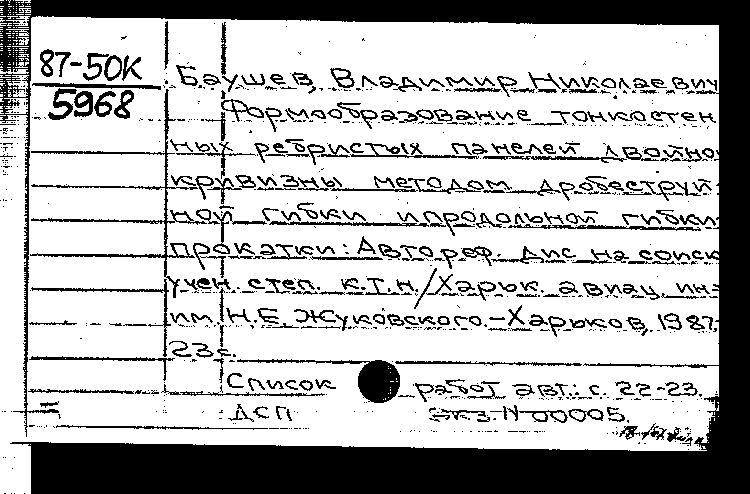 87-50К
5968
Баушев, Владимир Николаевич
Формообразование тонкостен
ных ребристых панелей двойно
кривизны методом дробеструй-
ной гибки и продольной гибки-
прокатки: Автореф. дис на соиск
учен. степ. к.т.н./Харьк. авиац. ин-
им. Н.Е. Жуковского.-Харьков, 1987.
23 с.
Список работ авт.: с. 22-23.
ДСП Экз. N 00005.